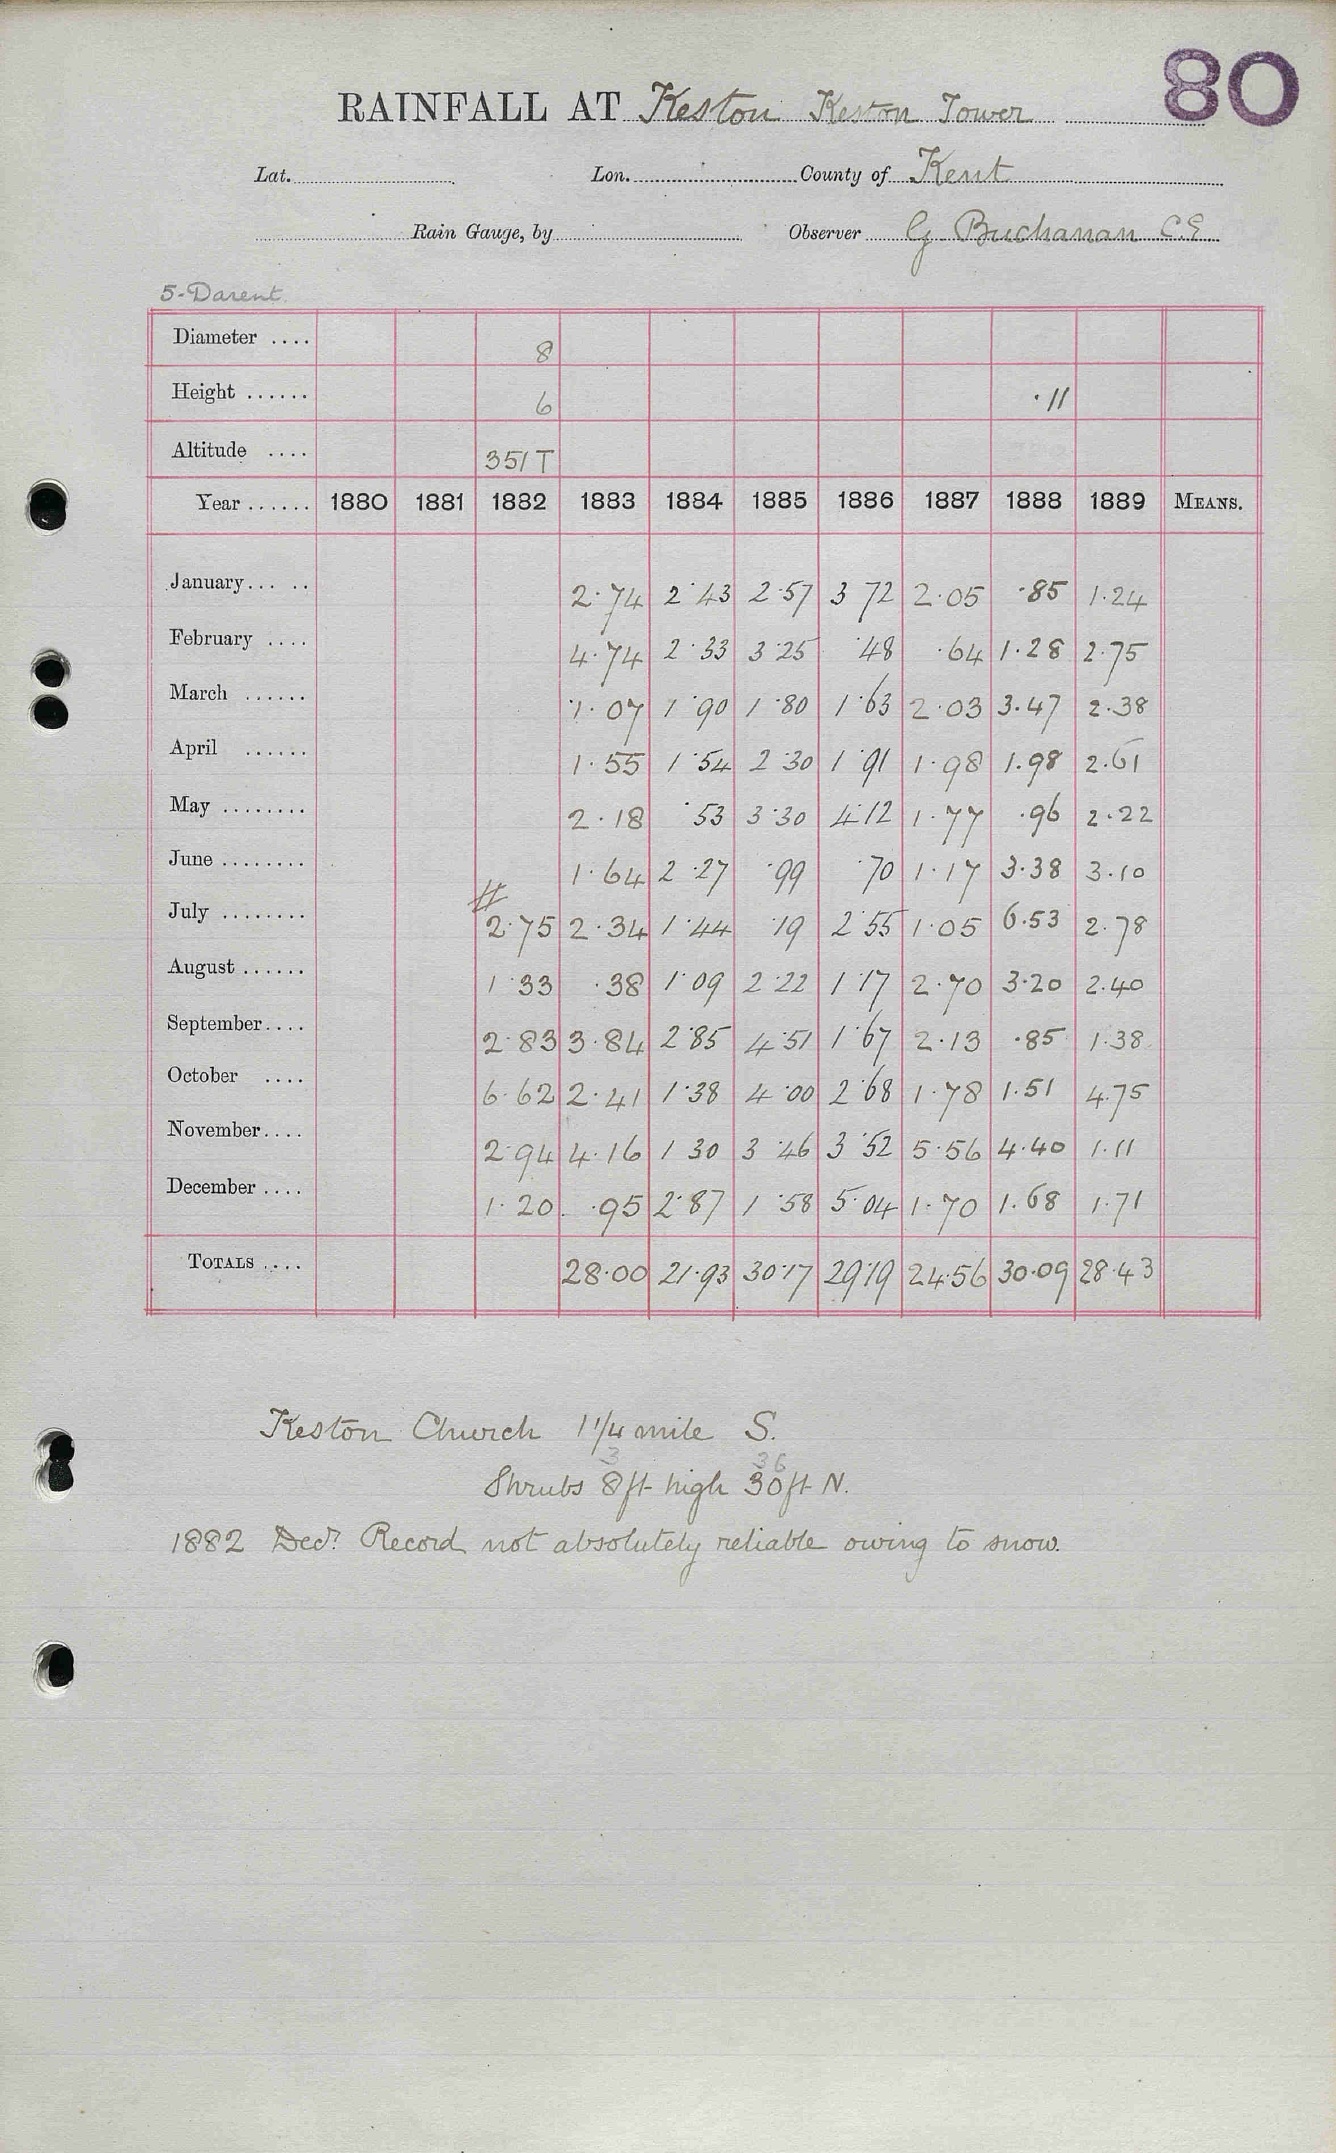 80
RAINFALL AT Keston Keston Tower
Lat. Lon. County of Kent
Rain Gauge, by Observer G Buchanan C.E
5-Darent
Diameter .... 8
Height ...... 6 ·11
Altitude .... 351 T
Year ...... 1880 1881 1882 1883 1884 1885 1886 1887 1888 1889 MEANS.
January... .. 2·74 2·43 2·57 3 72 2·05 ·85 1·24
February .... 4·74 2·33 3·25 ·48 ·64 1·28 2·75
March ...... 1·07 1·90 1·80 1·63 2·03 3·47 2·38
April ...... 1·55 1·54 2·30 1·91 1·98 1·98 2·61
May ........ 2·18 ·53 3·30 4·12 1·77 ·96 2·22
June ........ 1·64 2·27 ·99 ·70 1·17 3·38 3·10
July ........ # 2·75 2·34 1·44 ·19 2·55 1·05 6·53 2·78
August ...... 1·33 ·38 1·09 2·22 1·17 2·70 3·20 2·40
September.... 2·83 3·84 2·85 4·51 1·67 2·13 ·85 1·38
October .... 6·62 2·41 1·38 4·00 2·68 1·78 1·51 4·75
November.... 2·94 4·16 1 30 3·46 3·52 5·56 4·40 1·11
December .... 1·20 ·95 2·87 1·58 5·04 1·70 1·68 1·71
TOTALS .... 28·00 21·93 30·17 29·19 24·56 30·09 28·43
Keston Church 1 1/4 mile S.
3 36
Shrubs 8ft high 30ft N.
1882 Decr. Record not absolutely reliable owing to snow.